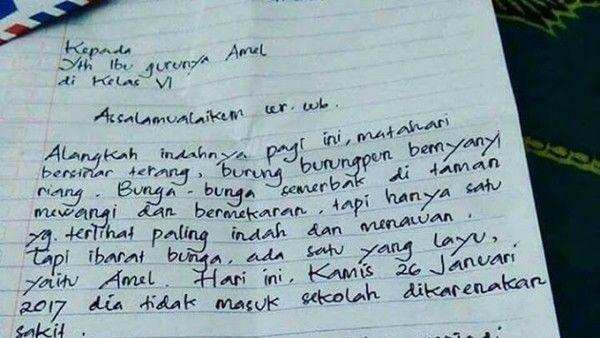 Kepada
Yth Ibu gurunya Amel
di Kelas VI
Assalamualaikem wr. wb.
Alangkah indahnya pagi ini, matahari
bersinar terang, burung burungpun bernyanyi
riang. Bunga-bunga semerbak di taman
mewangi dan bermekaran, tapi hanya satu
yg. terlihat paling indah dan menawan.
Tapi ibarat bunga, ada satu yang layu,
yaitu Amel. Hari ini, Kamis 26 Januari
2017 dia tidak masuk sekolah dikarenakan
sakit.